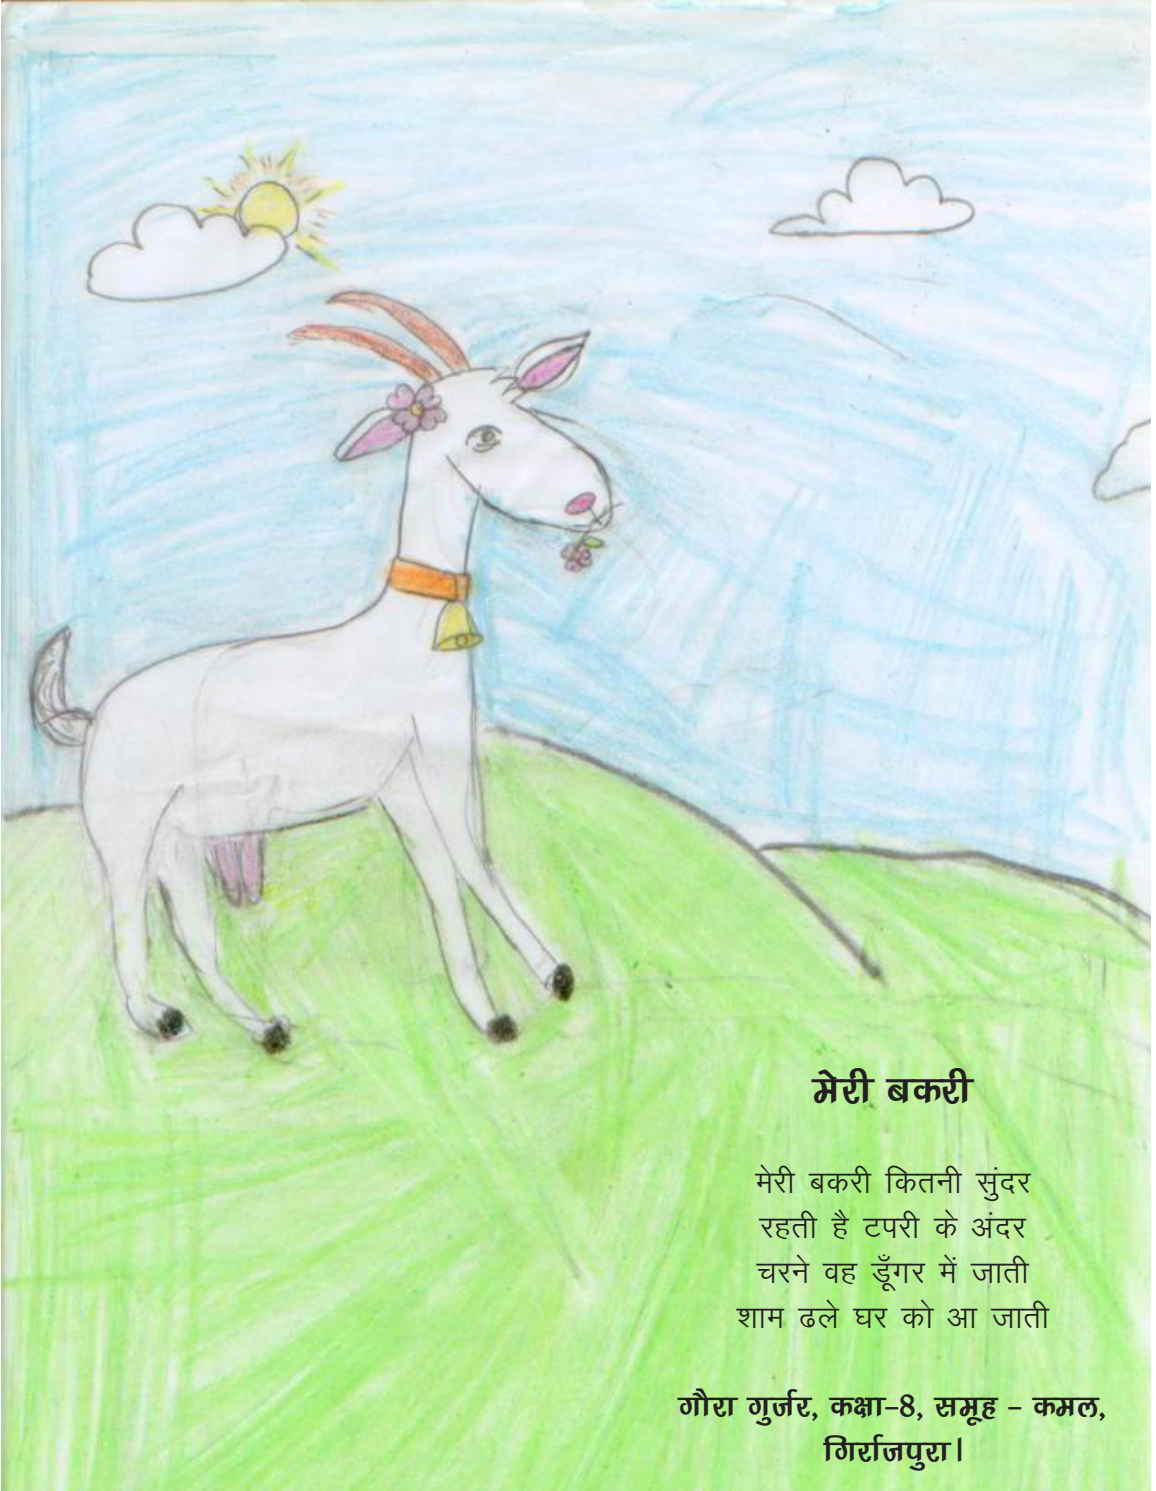 मेरी बकरी
मेरी बकरी कितनी सुंदर
रहती है टपरी के अंदर
चरने वह डूँगर में जाती
शाम ढले घर को आ जाती
गौरा गुर्जर, कक्षा-8, समूह - कमल,
गिर्राजपुरा।